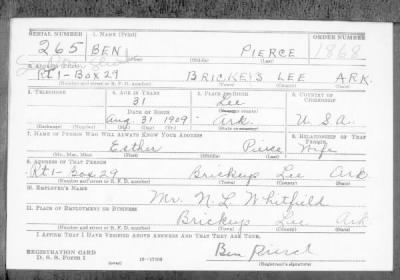 SERIAL NUMBER 1. NAME (Print) ORDER NUMBER
265 BEN PIERCE 1868
(First) (Middle) (Last)
2. ADDRESS (Print)
Rt 1-Box 29 BRICKEYS LEE ARK.
(Number and street or R. F. D. number) (Town) (County) (State)
3. TELEPHONE 4. AGE IN YEARS 5. PLACE OF BIRTH 6. COUNTRY OF CITIZENSHIP
31 Lee
DATE OF BIRTH (Town or county)
Aug. 31 1909 Ark. U.S.A.
(Exchange) (Number) (Mo.) (Day) (Yr.) (State or country)
7. NAME OF PERSON WHO WILL ALWAYS KNOW YOUR ADDRESS 8. RELATIONSHIP OF THAT PERSON
Esther Pierce Wife
(Mr., Mrs., Miss) (First) (Middle) (Last)
9. ADDRESS OF THAT PERSON
Rt 1-Box 29 Brickeys Lee Ark
(Number and street or R. F. D. number) (Town) (County) (State)
10. EMPLOYER'S NAME
Mr. N. L. Whitfield
11. PLACE OF EMPLOYMENT OR BUSINESS
Brickeys Lee Ark
(Number and street or R. F. D. number) (Town) (County) (State)
I AFFIRM THAT I HAVE VERIFIED ABOVE ANSWERS AND THAT THEY ARE TRUE.
REGISTRATION CARD
D. S. S. Form 1 (over) 16-17105 Ben Pierch
(Registrant's signature)